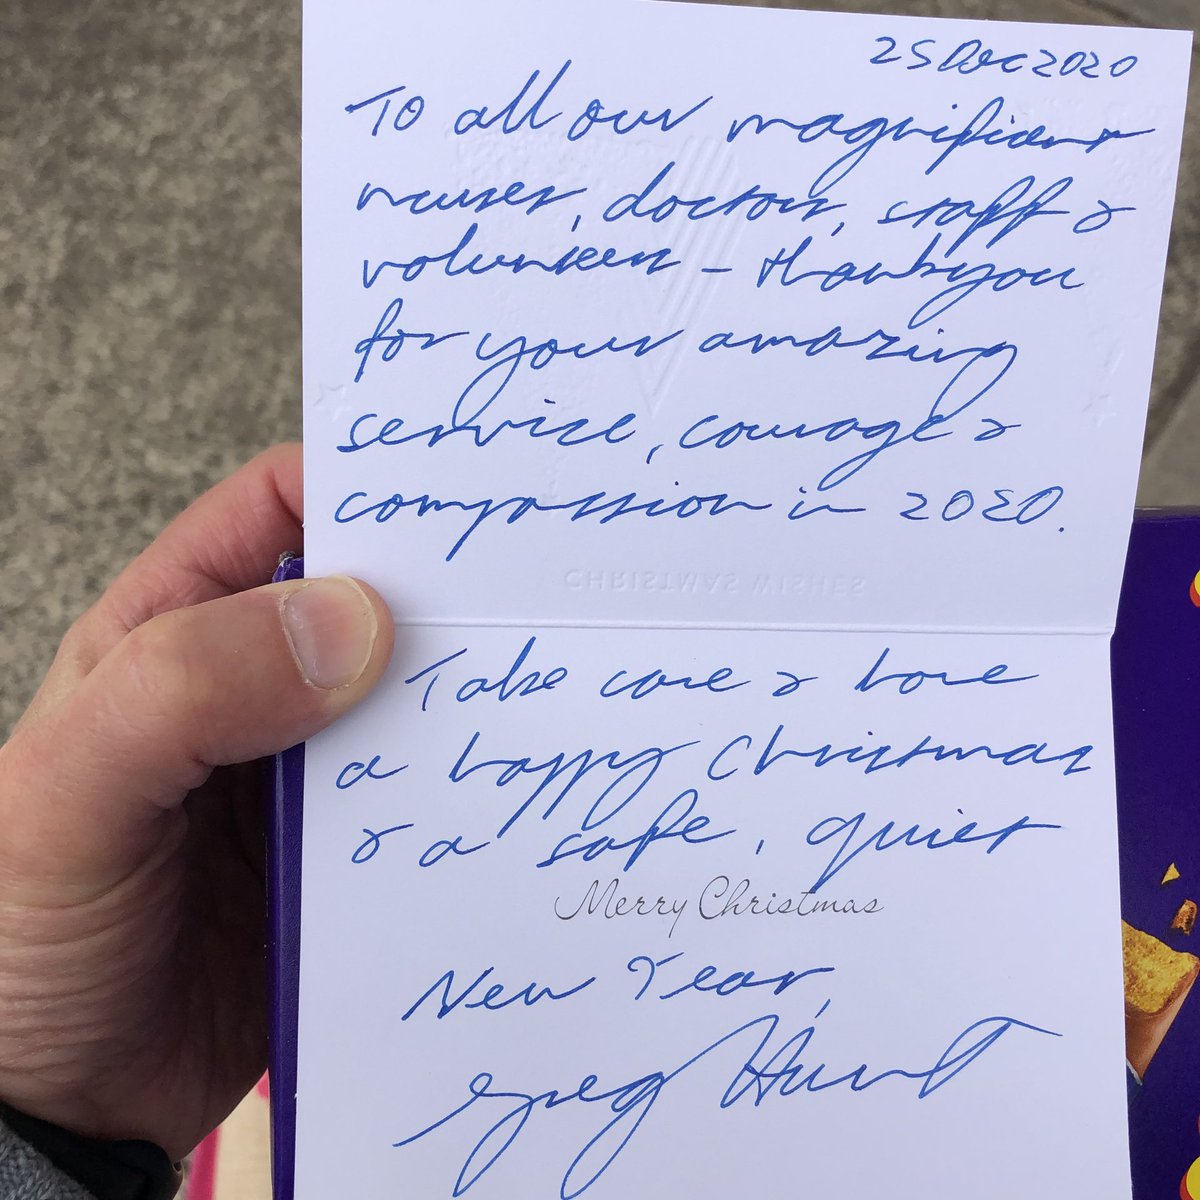 25 Dec 2020
To all our magnificent
nurses, doctors, staff &
volunteers – thankyou
for your amazing
service, courage &
compassion in 2020.
CHRISTMAS WISHES
Take care & have
a happy Christmas
& a safe, quiet
Merry Christmas
New Year,
Greg Hunt